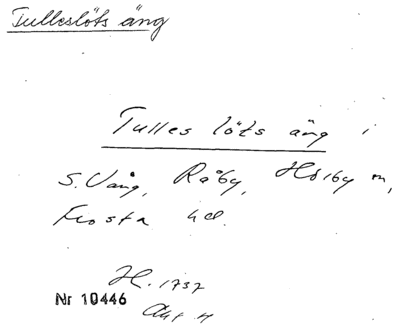 Tulleslöts äng
Tulles löts äng i
S. Vång, Råby, Hörby sn,
Frosta hd.
H. 1737
Nr 10446
Akt 4